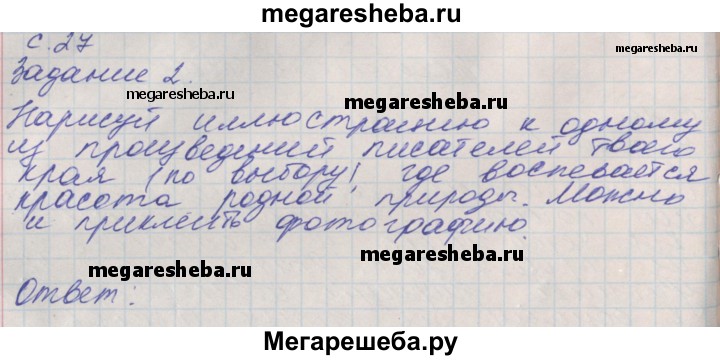 megaresheba.ru
с. 27
megaresheba.ru
Задание 2.
megaresheba.ru
megaresheba.ru
Нарисуй иллюстрацию к одному
из произведений писателей твоего
края (по выбору), где воспевается
красота родной природы. Можно
и приклеить фотографию.
megaresheba.ru
megaresheba.ru
Ответ:
Мегарешеба.ру